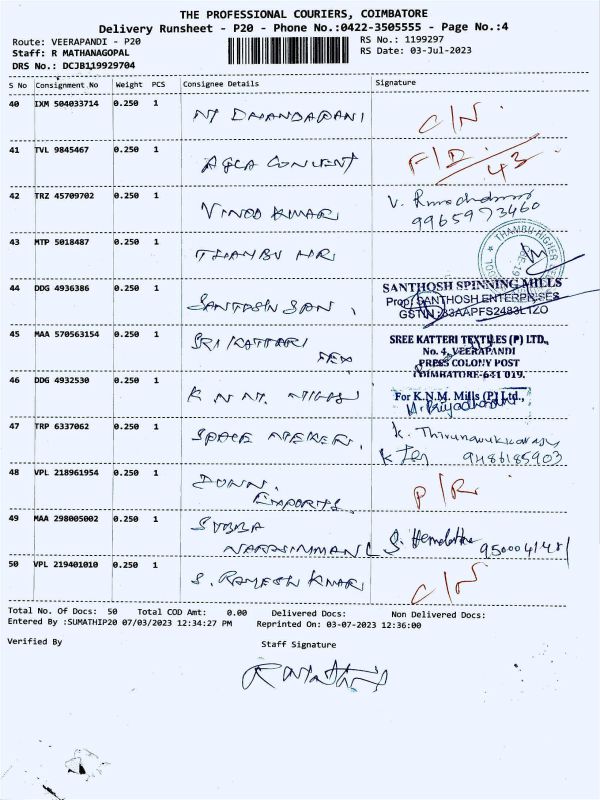 THE PROFESSIONAL COURIERS, COIMBATORE
Delivery Runsheet - P20 - Phone No.:0422-3505555 - Page No.:4
Route: VEERAPANDI - P20
RS No.: 1199297
Staff: R MATHANAGOPAL
RS Date: 03-Jul-2023
DRS No.: DCJB119929704
S No Consignment No Weight PCS Consignee Details Signature
40 IXM 504033714 0.250 1 NT DHANDAPANI C/N.
41 TVL 9845467 0.250 1 AGLA CONVENT F/D. 43
42 TRZ 45709702 0.250 1 VINOD KUMAR V.
9965973460
43 MTP 5018487 0.250 1 THAMBU HR.
THAMBU HIGHER
44 DDG 4936386 0.250 1 SANTHOSH SPN.
SANTHOSH SPINNING MILLS
Prop: SANTHOSH ENTERPRISES
GSTN :33AAPFS2483L1ZO
45 MAA 570563154 0.250 1 SRI KATTARI
TEX
SREE KATTERI TEXTILES (P) LTD.,
No. 4, VEERAPANDI
PRESS COLONY POST
COIMBATORE-641 019.
46 DDG 4932530 0.250 1 K.N.M. MILLS
For K.N.M. Mills (P) Ltd.,
47 TRP 6337062 0.250 1 SPACE MAKER. K. Thirunavukkarasu
9486185903
48 VPL 218961954 0.250 1 DONN.
EXPORTS. P/R.
49 MAA 298005002 0.250 1 SUBBA
NARSIMMAN S. Hemalatha 9500041481
50 VPL 219401010 0.250 1 S. RAMESH KUMAR C/N
Total No. Of Docs: 50 Total COD Amt: 0.00 Delivered Docs: Non Delivered Docs:
Entered By :SUMATHIP20 07/03/2023 12:34:27 PM Reprinted On: 03-07-2023 12:36:00
Verified By
Staff Signature